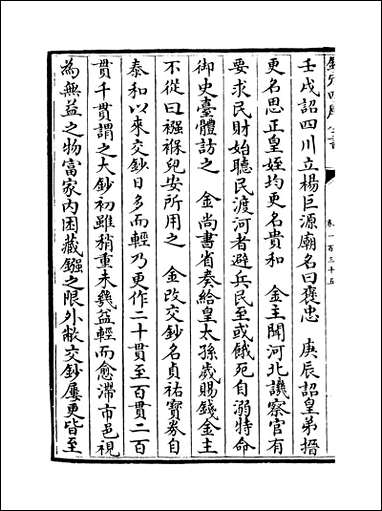 欽定四庫全書
卷一百三十五
壬戌詔四川立楊巨源廟名曰褒忠 庚辰詔皇弟搢
更名思正皇姪均更名貴和 金主聞河北譏察官有
要求民財始聽民渡河者避兵民至或餓死自溺特命
御史臺體訪之 金尚書省奏給皇太孫歲賜錢金主
不從曰襁褓兒安所用之 金改交鈔名貞祐寶券自
泰和以來交鈔日多而輕乃更作二十貫至百貫二百
貫千貫謂之大鈔初雖稍重未幾益輕而愈滯市邑視
為無益之物富家內困藏鏹之限外敝交鈔屢更皆至